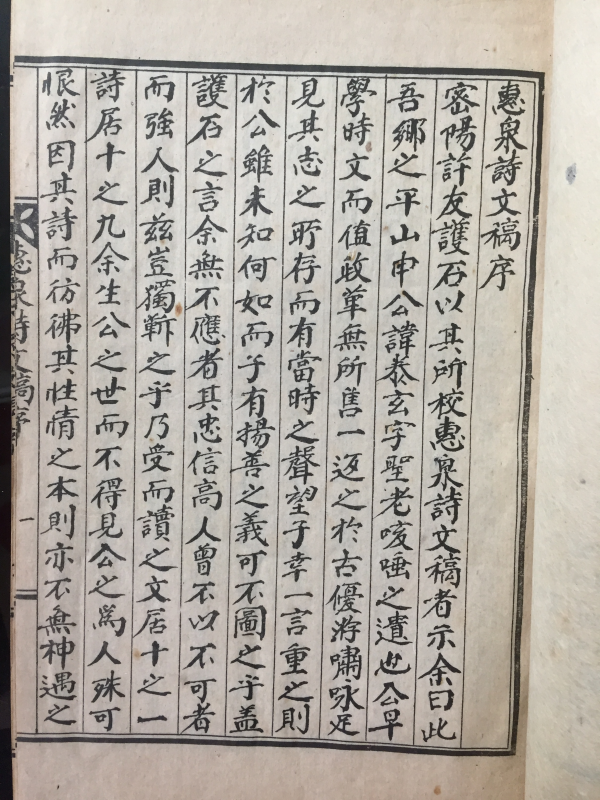 惠泉詩文稿序
密陽許友護石以其所校惠泉詩文稿者示余曰此
吾鄉之平山申公諱泰玄字聖老咳唾之遺也公早
學時文而值政革無所售一返之於古優游嘯咏足
見其志之所存而有當時之聲望子幸一言重之則
於公雖未知何如而子有揚善之義可不圖之乎盖
護石之言余無不應者其忠信高人曾不以不可者
而強人則玆豈獨靳之乎乃受而讀之文居十之一
詩居十之九余生公之世而不得見公之爲人殊可
恨然因其詩而彷彿其性情之本則亦不無神遇之
惠泉詩文稿序
一